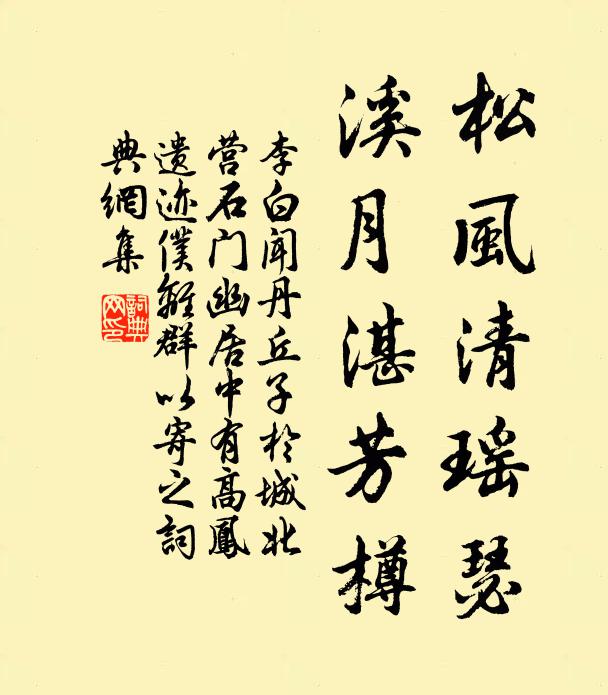 松風清瑶瑟
溪月湛芳樽
李白聞丹丘子於城北
营石门幽居中有高鳳
遺迹僕離群以寄之詞
典網集
詞典网印